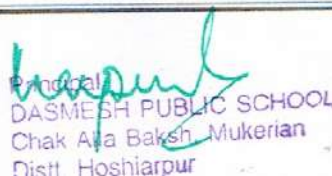 Principal
DASMESH PUBLIC SCHOOL
Chak Alla Baksh, Mukerian
Distt. Hoshiarpur